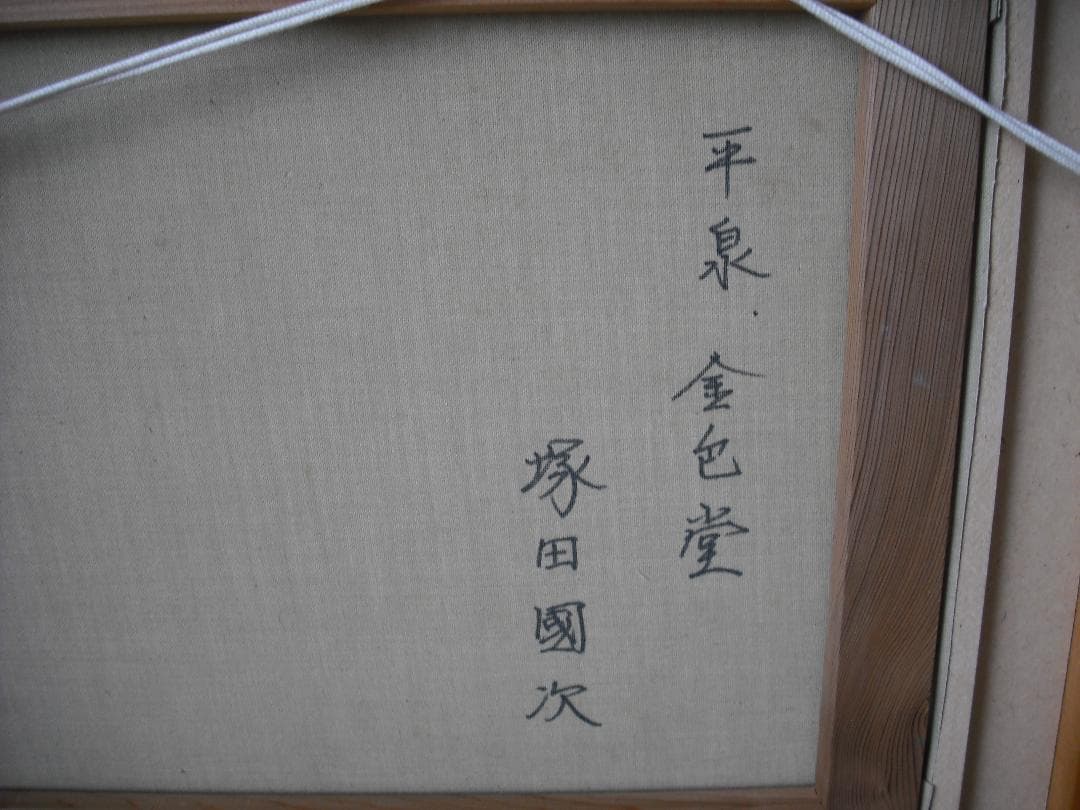 平泉.金色堂
塚田國次